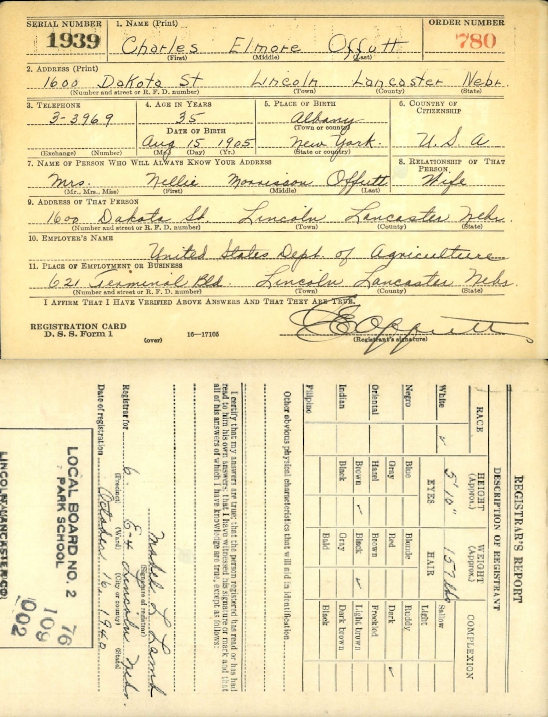 SERIAL NUMBER 1. NAME (Print) ORDER NUMBER
1939 Charles Elmore Offutt 780
(First) (Middle) (Last)
2. ADDRESS (Print)
1600 Dakota St Lincoln Lancaster Nebr.
(Number and street or R. F. D. number) (Town) (County) (State)
3. TELEPHONE 4. AGE IN YEARS 5. PLACE OF BIRTH 6. COUNTRY OF CITIZENSHIP
3-3969 35 Albany
(Town or county)
DATE OF BIRTH
Aug 15 1905 New York. U. S. A
(Exchange) (Number) (Mo.) (Day) (Yr.) (State or country)
7. NAME OF PERSON WHO WILL ALWAYS KNOW YOUR ADDRESS 8. RELATIONSHIP OF THAT PERSON
Mrs. Nellie Morrison Offutt Wife
(Mr., Mrs., Miss) (First) (Middle) (Last)
9. ADDRESS OF THAT PERSON
1600 Dakota St. Lincoln Lancaster Nebr.
(Number and street or R. F. D. number) (Town) (County) (State)
10. EMPLOYER'S NAME
United States Dept. of Agriculture
11. PLACE OF EMPLOYMENT OR BUSINESS
621 Terminal Bld. Lincoln Lancaster Nebr.
(Number and street or R. F. D. number) (Town) (County) (State)
I AFFIRM THAT I HAVE VERIFIED ABOVE ANSWERS AND THAT THEY ARE TRUE.
REGISTRATION CARD
D. S. S. Form 1 (over) 16—17105 C E Offutt
(Registrant's signature)
REGISTRAR'S REPORT
DESCRIPTION OF REGISTRANT
RACE HEIGHT (Approx.) WEIGHT (Approx.) COMPLEXION
White ✓ 5' 10" 157 lbs Sallow
EYES HAIR Light
Negro Blue Blonde Ruddy
Gray Red Dark ✓
Oriental Hazel Brown Freckled
Brown ✓ Black ✓ Light brown
Indian Black Gray Dark brown
Filipino Bald Black
Other obvious physical characteristics that will aid in identification
I certify that my answers are true; that the person registered has read or has had
read to him his own answers; that I have witnessed his signature or mark and that
all of his answers of which I have knowledge are true, except as follows:
Mabel L Lamb
(Signature of registrar)
Registrar for 6 5-4 Lincoln Nebr.
(Precinct) (Ward) (City or county) (State)
Date of registration October 16 1940
LOCAL BOARD NO. 2
PARK SCHOOL
LINCOLN, LANCASTER CO.
76
109
002